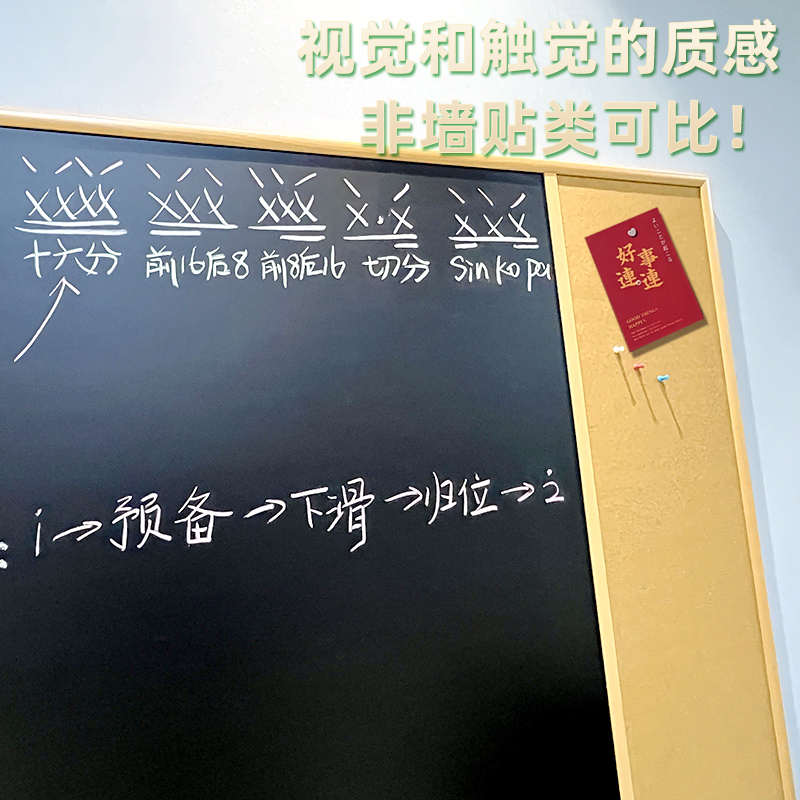 视觉和触觉的质感
非墙贴类可比！
xxxx xxx xxx x.x xxx
十六分 前16后8 前8后16 切分 sin ko pa
: i→预备→下滑→归位→2
よいことが起こる
好事
連連
GOOD THINGS
HAPPEN